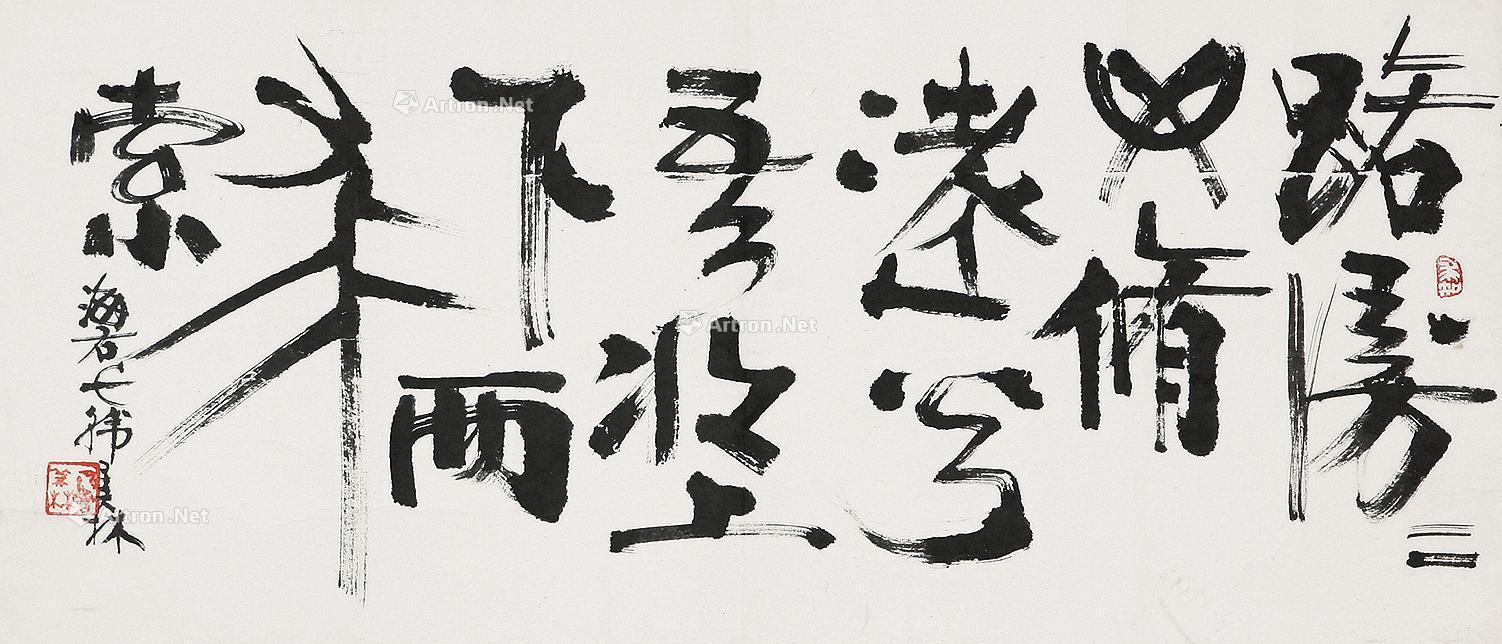 路漫〻
其脩
遠兮
吾將上
下而
求
索
韩美林
Artron.Net
Artron.Net
Artron.Net